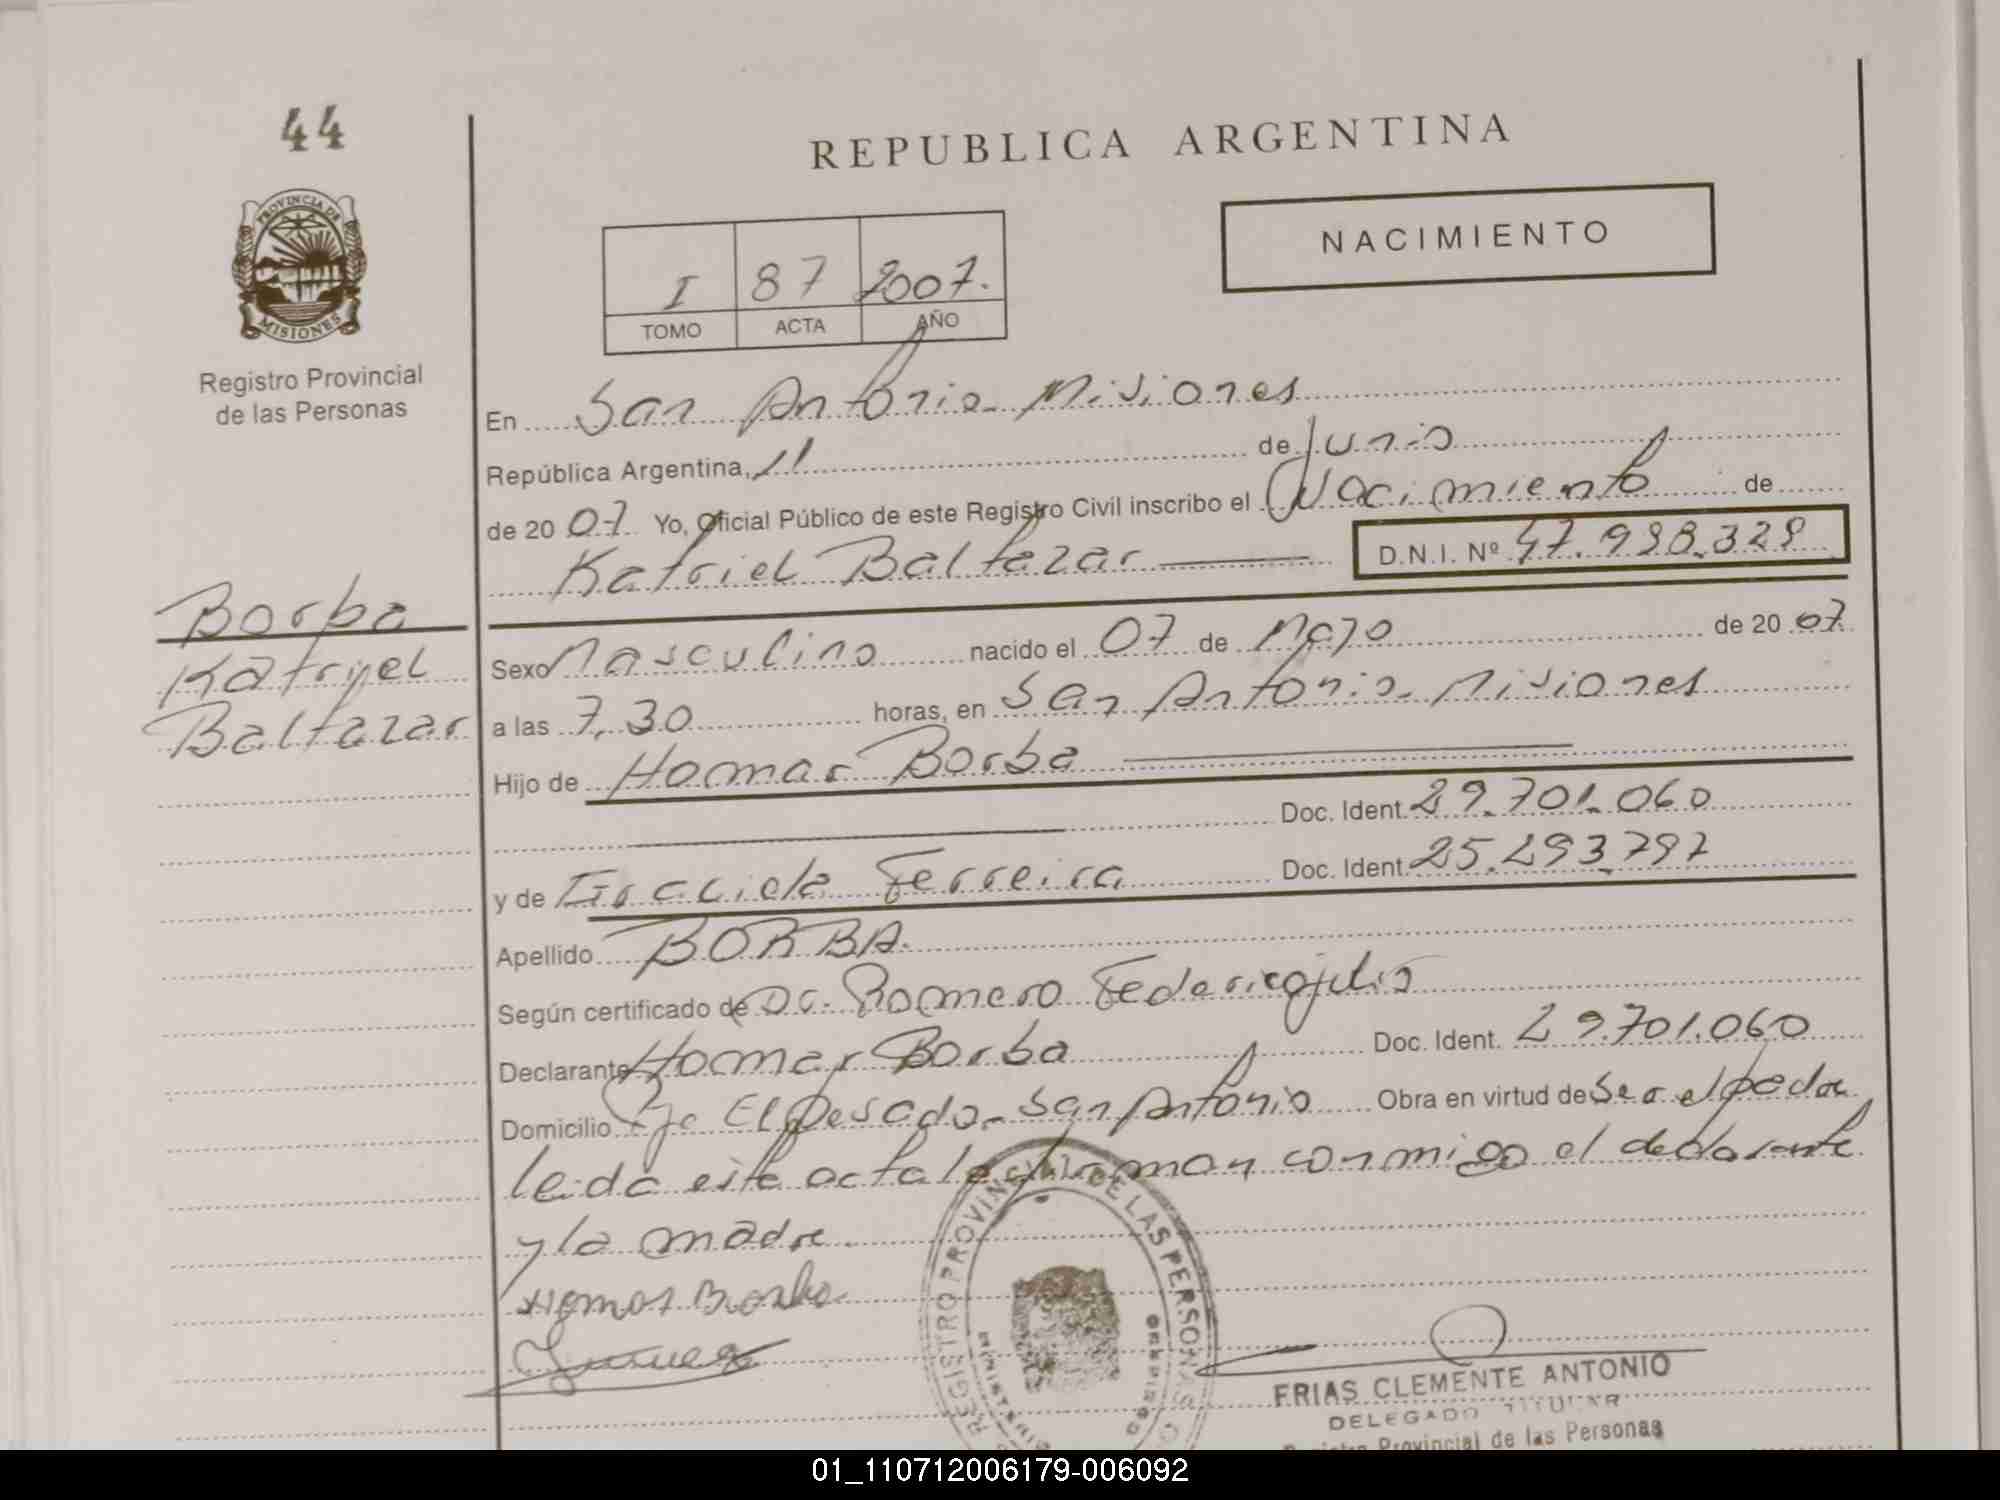 44
REPUBLICA ARGENTINA
PROVINCIA DE
MISIONES
NACIMIENTO
I 87 2007.
TOMO ACTA AÑO
Registro Provincial
de las Personas
En San Antonio - Misiones
República Argentina, 11 de Junio
de 2007 Yo, Oficial Público de este Registro Civil inscribo el Nacimiento de
Katriel Baltazar D.N.I. Nº 47.998.328
Borba
Katryel
Baltazar
Sexo Masculino nacido el 07 de Mayo de 2007
a las 7,30 horas, en San Antonio - Misiones
Hijo de Homar Borba
Doc. Ident. 29.701.060
y de Graciela Ferreira Doc. Ident. 25.293.797
Apellido BORBA.
Según certificado de Dr. Romero Federico Julio
Declarante Homar Borba Doc. Ident. 29.701.060
Domicilio Pje El Pesado - San Antonio Obra en virtud de Ser el padre
leida este acta la firman conmigo el declarante
y la madre.
Homar Borba
REGISTRO PROVINCIAL DE LAS PERSONAS
MINISTERIO
FRIAS CLEMENTE ANTONIO
DELEGADO TITULAR
Registro Provincial de las Personas
01_110712006179-006092